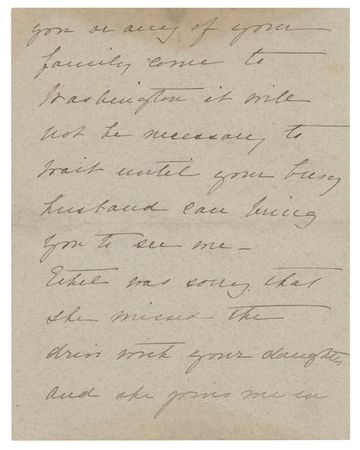 you or any of your
family come to
Washington it will
not be necessary to
wait until your busy
husband can bring
you to see me –
Ethel was sorry that
she missed the
drive with your daughter
and she joins me in